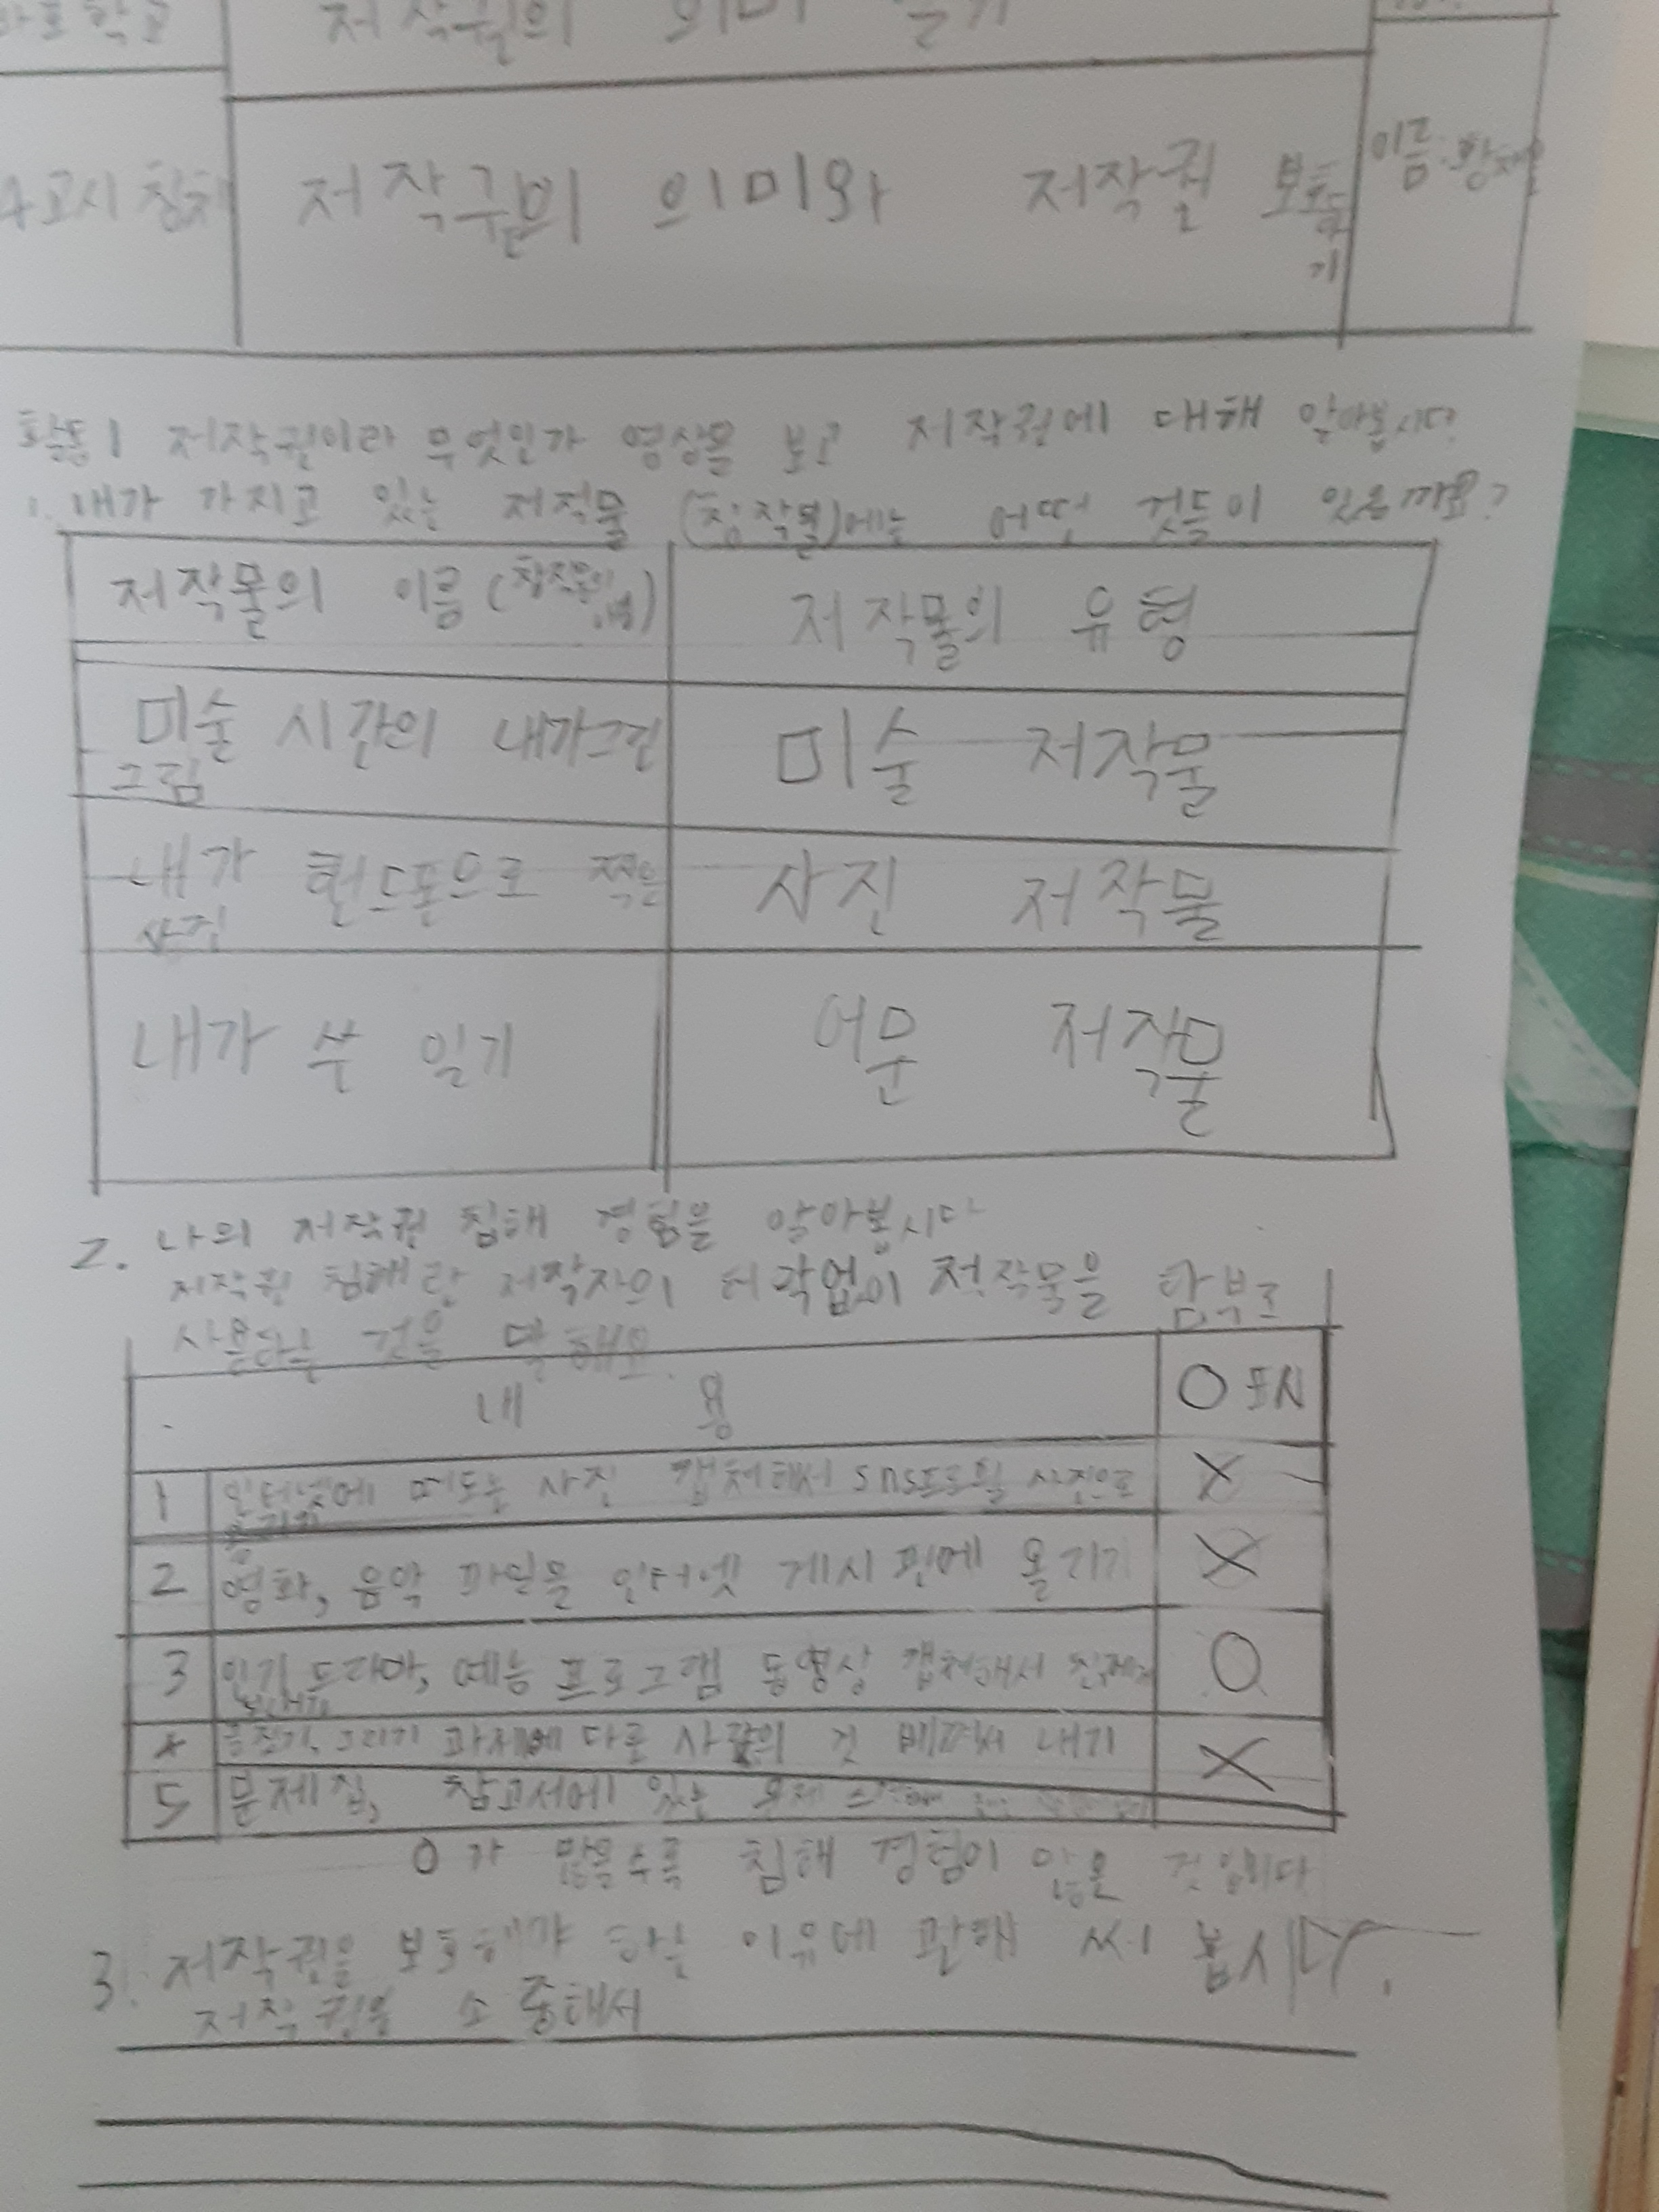 저작권의 의미 알기
저작권의 의미와 저작권 보호하기
이름:
활동1 저작권이란 무엇인가 영상을 보고 저작권에 대해 알아봅시다
1. 내가 가지고 있는 저작물 (창작물)에는 어떤 것들이 있을까요?
저작물의 이름 (창작물의
저작물의 유형
미술 시간의 내가그린
그림
미술 저작물
내가 핸드폰으로 찍은
사진
사진 저작물
내가 쓴 일기
어문 저작물
2. 나의 저작권 침해 경험을 알아봅시다
저작권 침해란 저작자의 허락없이 저작물을 함부로
사용하는 것을 말해요.
내 용
O 표시
1 인터넷에 떠도는 사진 캡처해서 sns프로필 사진으로
X
2 영화, 음악 파일을 인터넷 게시판에 올리기
X
3 인기 드라마, 예능 프로그램 동영상 캡처해서 친구에게
보내기
O
4 글짓기, 그리기 과제에 다른 사람의 것 베껴서 내기
X
5 문제집, 참고서에 있는 문제
O가 많을수록 침해 경험이 많은 것입니다
3. 저작권을 보호해야 하는 이유에 관해 써 봅시다.
저작권은 소중해서